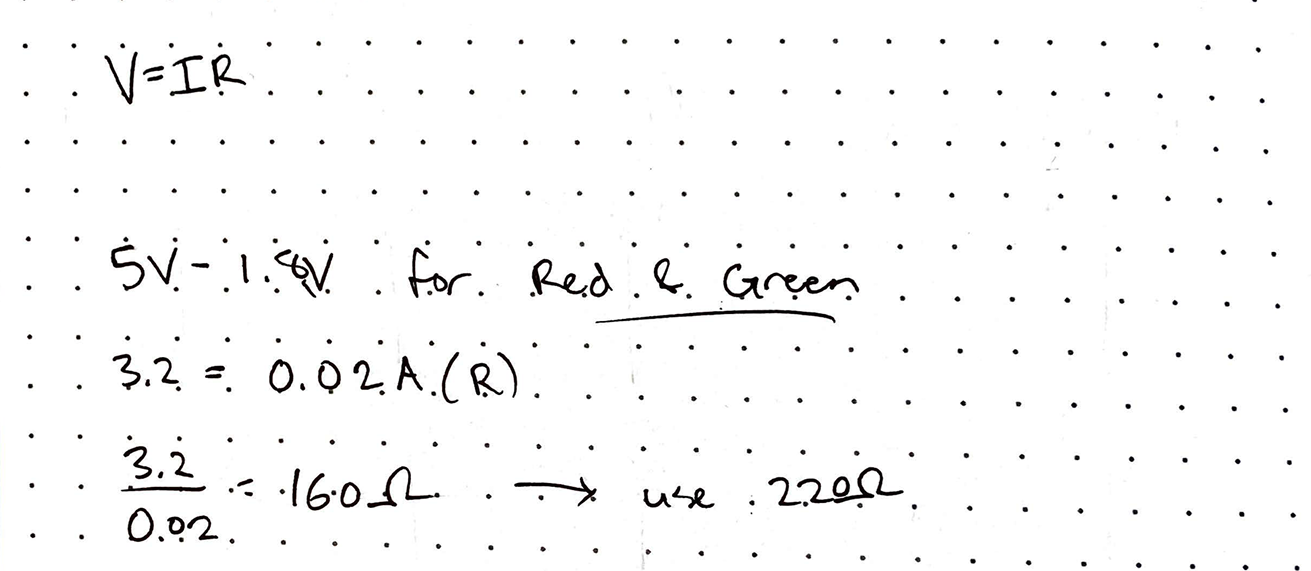 V=IR
5V - 1.8V for Red & Green
3.2 = 0.02A (R)
3.2
0.02 = 160Ω → use 220Ω